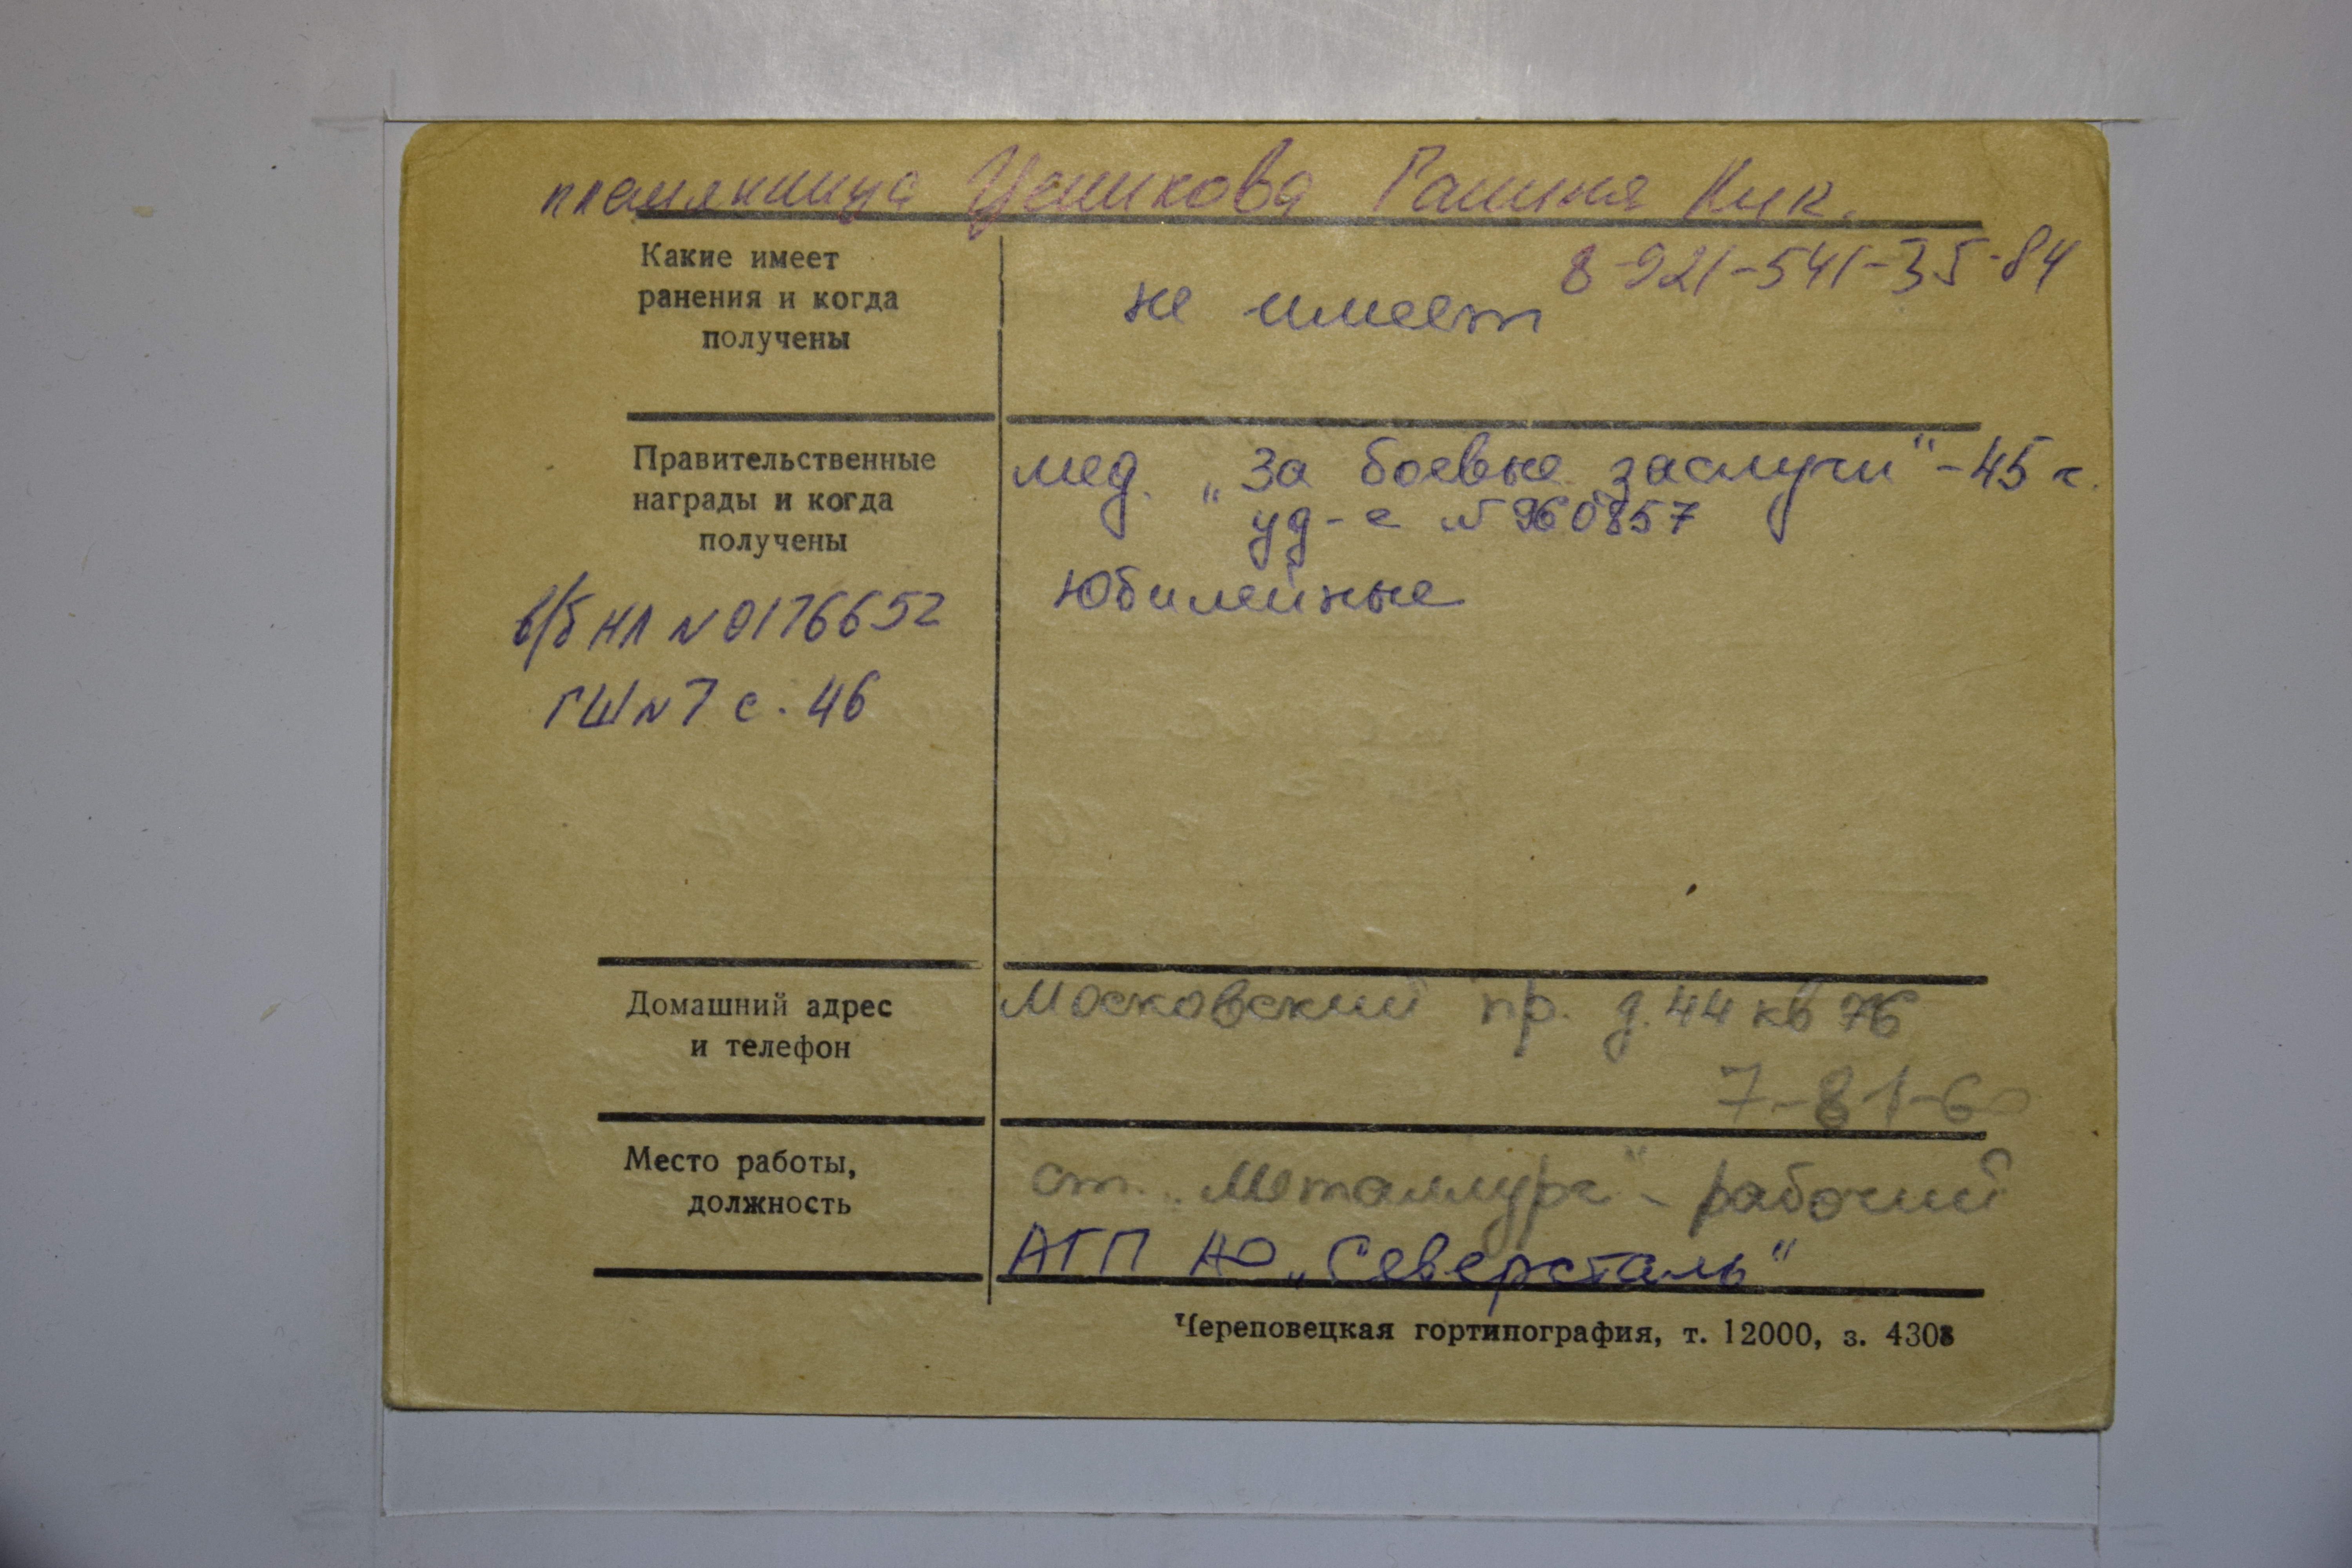 племянница Цешкова Галина Ник.
8-921-541-35-84
Какие имеет
ранения и когда
получены
не имеет
Правительственные
награды и когда
получены
мед. „За боевые заслуги" - 45 г.
уд-е № 960857
Юбилейные
в/б НЛ № 0176652
ГШ № 7 с. 46
Домашний адрес
и телефон
Московский пр. д. 44 кв 76
7-81-6
Место работы,
должность
ст. „Металлург" - рабочий
АГП АО „Северсталь"
Череповецкая гортипография, т. 12000, з. 4308